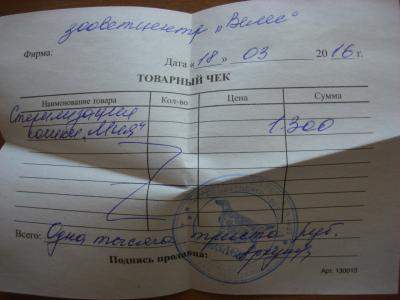 зооветцентр „Велес"
Фирма:
Дата «18» 03 2016 г.
ТОВАРНЫЙ ЧЕК
Наименование товара Кол-во Цена Сумма
Стерилизация 1300
кошки „Мия"
Всего: Одна тысяча триста руб.
Подпись продавца:
Арт. 130010